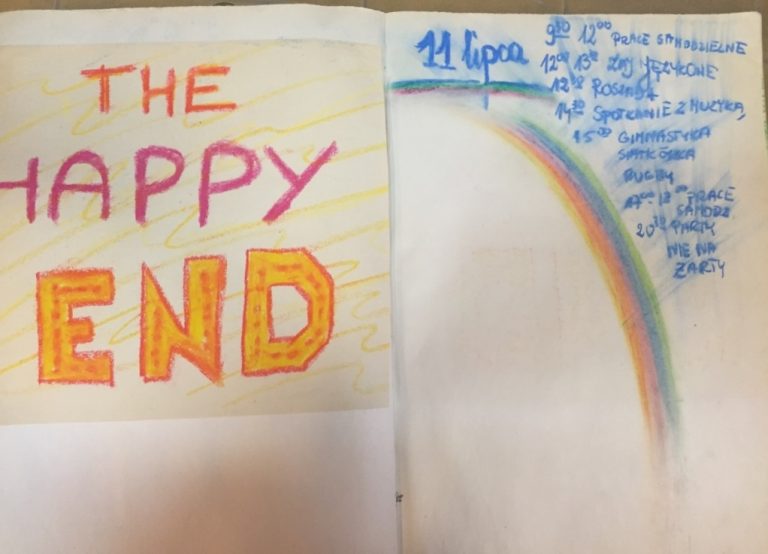 THE
HAPPY
END
11 lipca
9³⁰ 12⁰⁰ PRACE SAMODZIELNE
12⁰⁰ 13¹⁵ ZAJ JĘZYKOWE
ROSZADA
14³⁰ SPOTKANIE Z MUZYKĄ
15⁰⁰ GIMNASTYKA
SIATKÓWKA
RUGBY
PRACE
SAMODZ
20³⁰ PARTY
NIE NA
ŻARTY